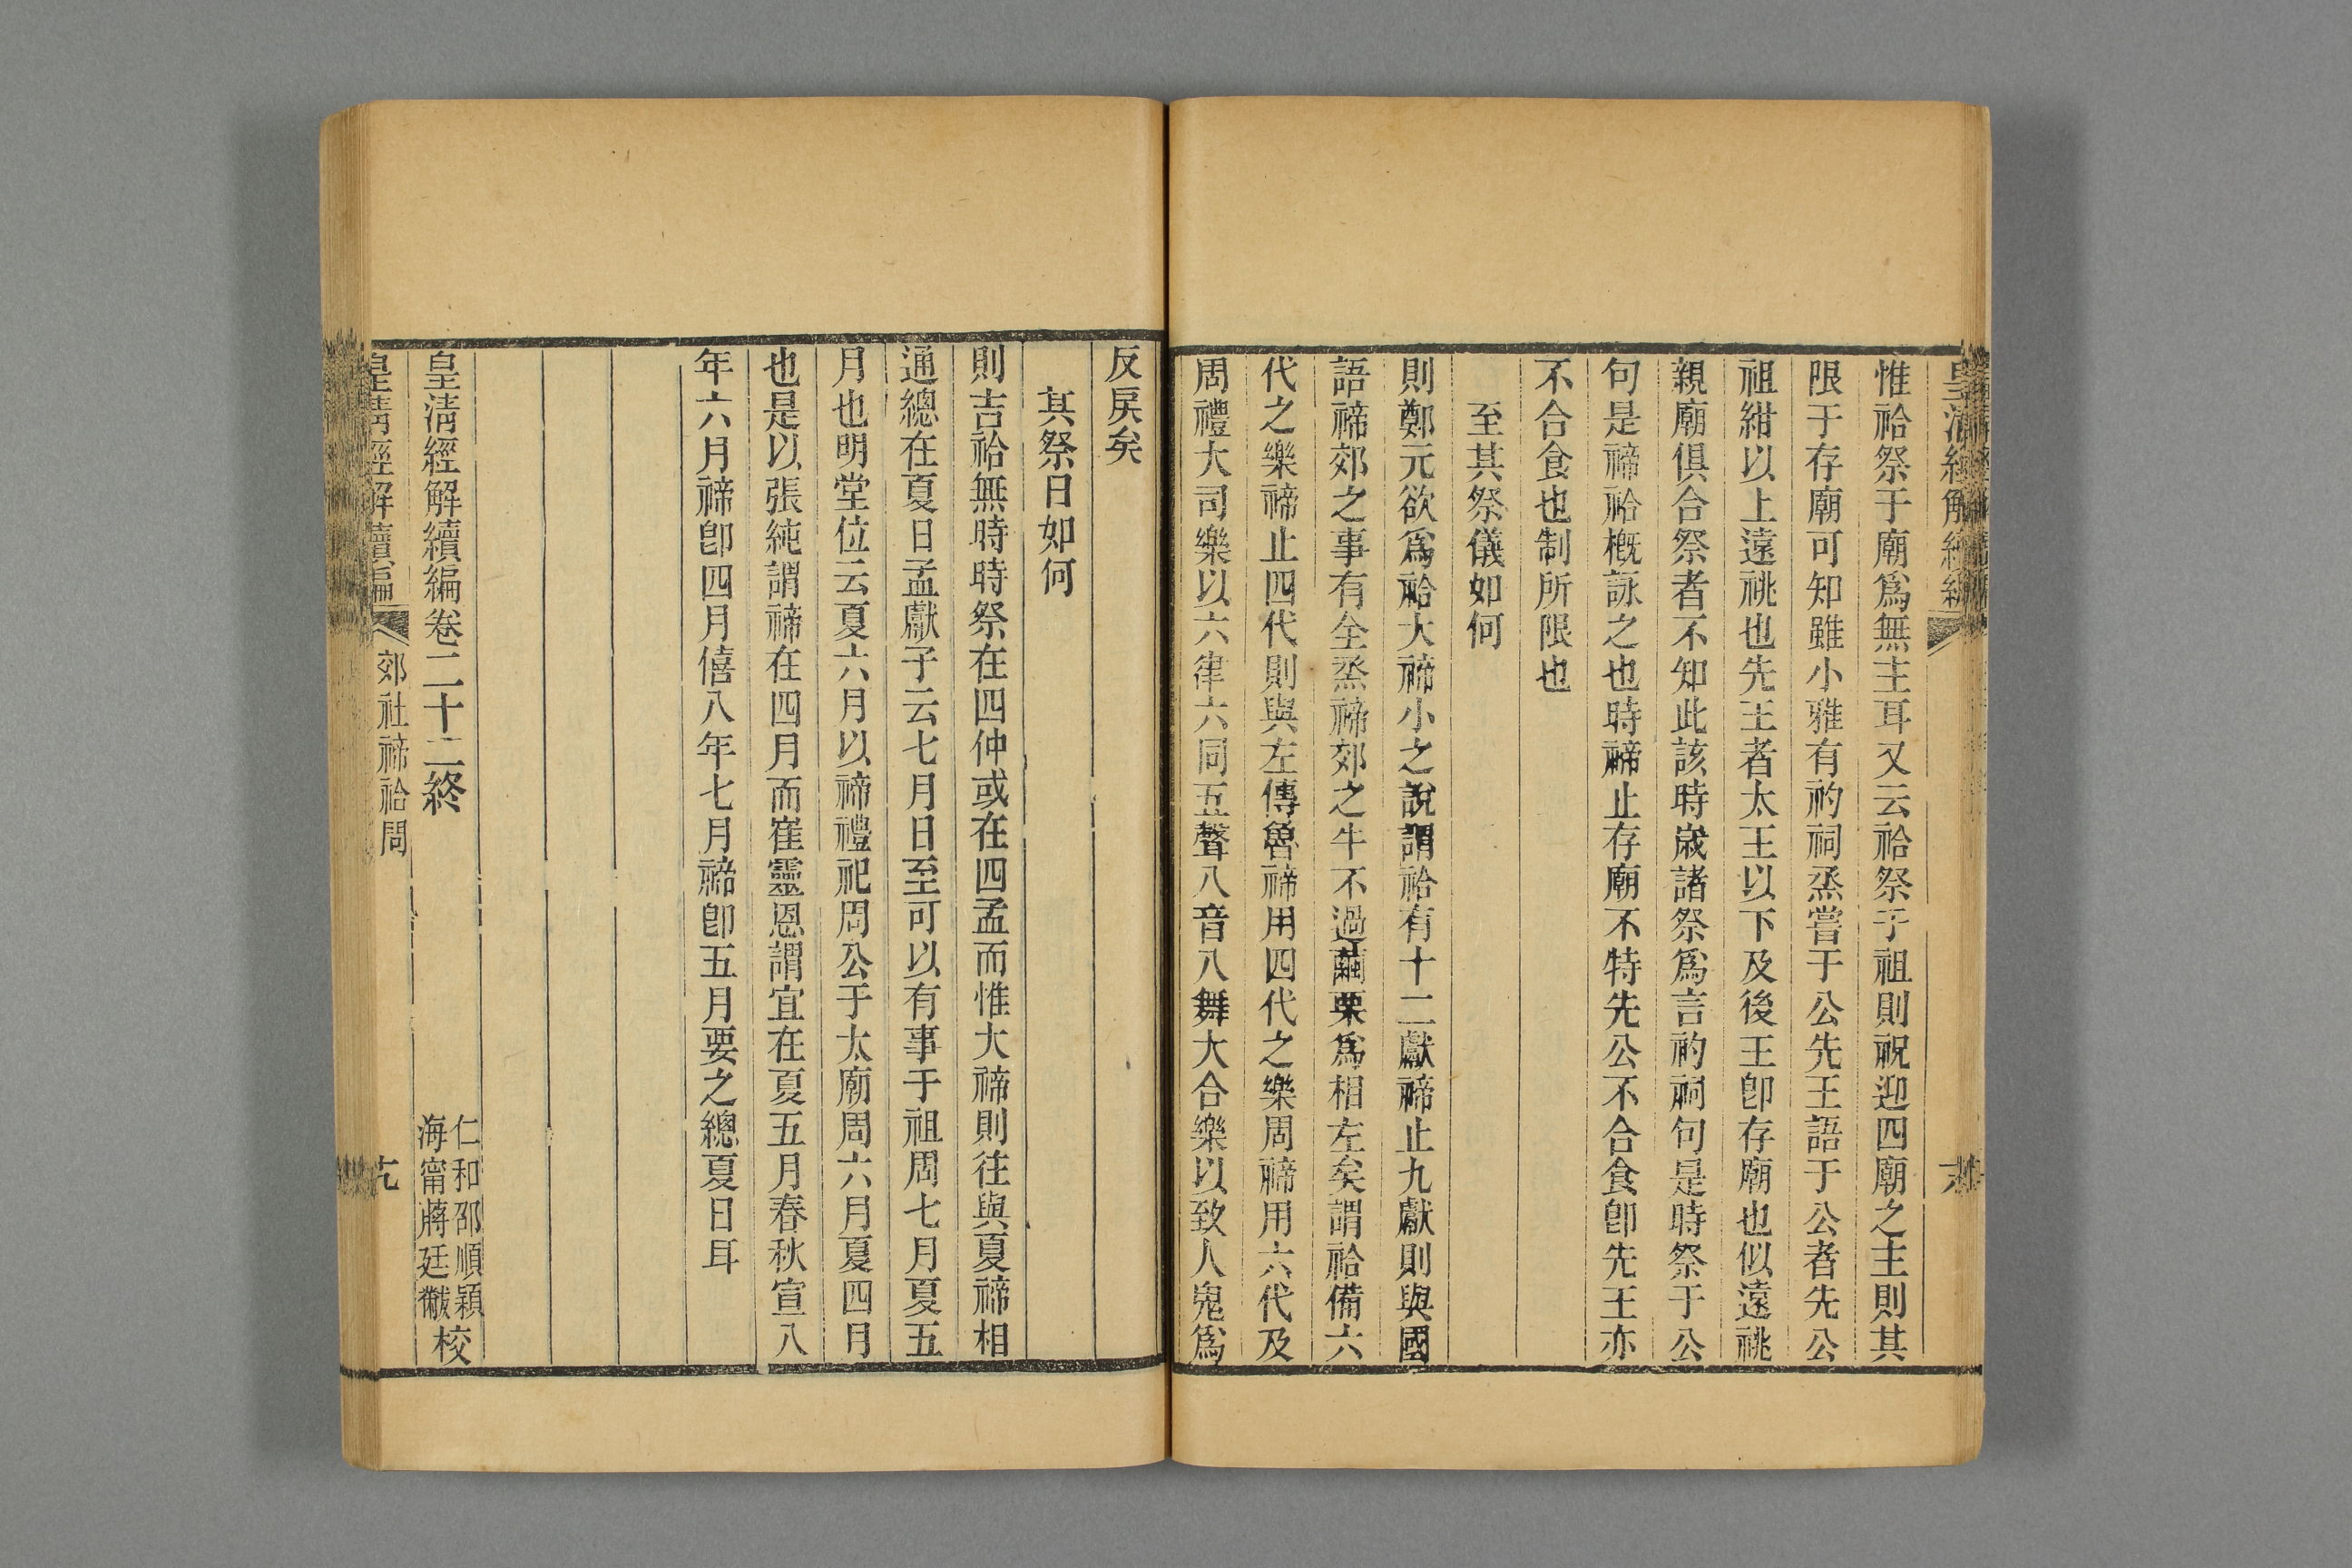 惟祫祭于廟爲無主耳又云祫祭于祖則祝迎四廟之主則其
限于存廟可知雖小雅有礿祠烝嘗于公先王語于公者先公
祖紺以上遠祧也先王者太王以下及後王卽存廟也似遠祧
親廟俱合祭者不知此該時歲諸祭爲言礿祠句是時祭于公
句是禘祫槪詠之也時禘止存廟不特先公不合食卽先王亦
不合食也制所限也
至其祭儀如何
則鄭元欲爲祫大禘小之說謂祫有十二獻禘止九獻則與國
語禘郊之事有全烝禘郊之牛不過繭栗爲相左矣謂祫備六
代之樂禘止四代則與左傳魯禘用四代之樂周禘用六代及
周禮大司樂以六律六同五聲八音八舞大合樂以致人鬼爲
反戾矣
其祭日如何
則吉祫無時時祭在四仲或在四孟而惟大禘則往與夏禘相
通總在夏日孟獻子云七月日至可以有事于祖周七月夏五
月也明堂位云夏六月以禘禮祀周公于太廟周六月夏四月
也是以張純謂禘在四月而崔靈恩謂宜在夏五月春秋宣八
年六月禘卽四月僖八年七月禘卽五月要之總夏日耳
皇淸經解續編卷二十二終
仁和邵順穎
海甯蔣廷黻
校
皇淸經解續編
郊社禘祫問